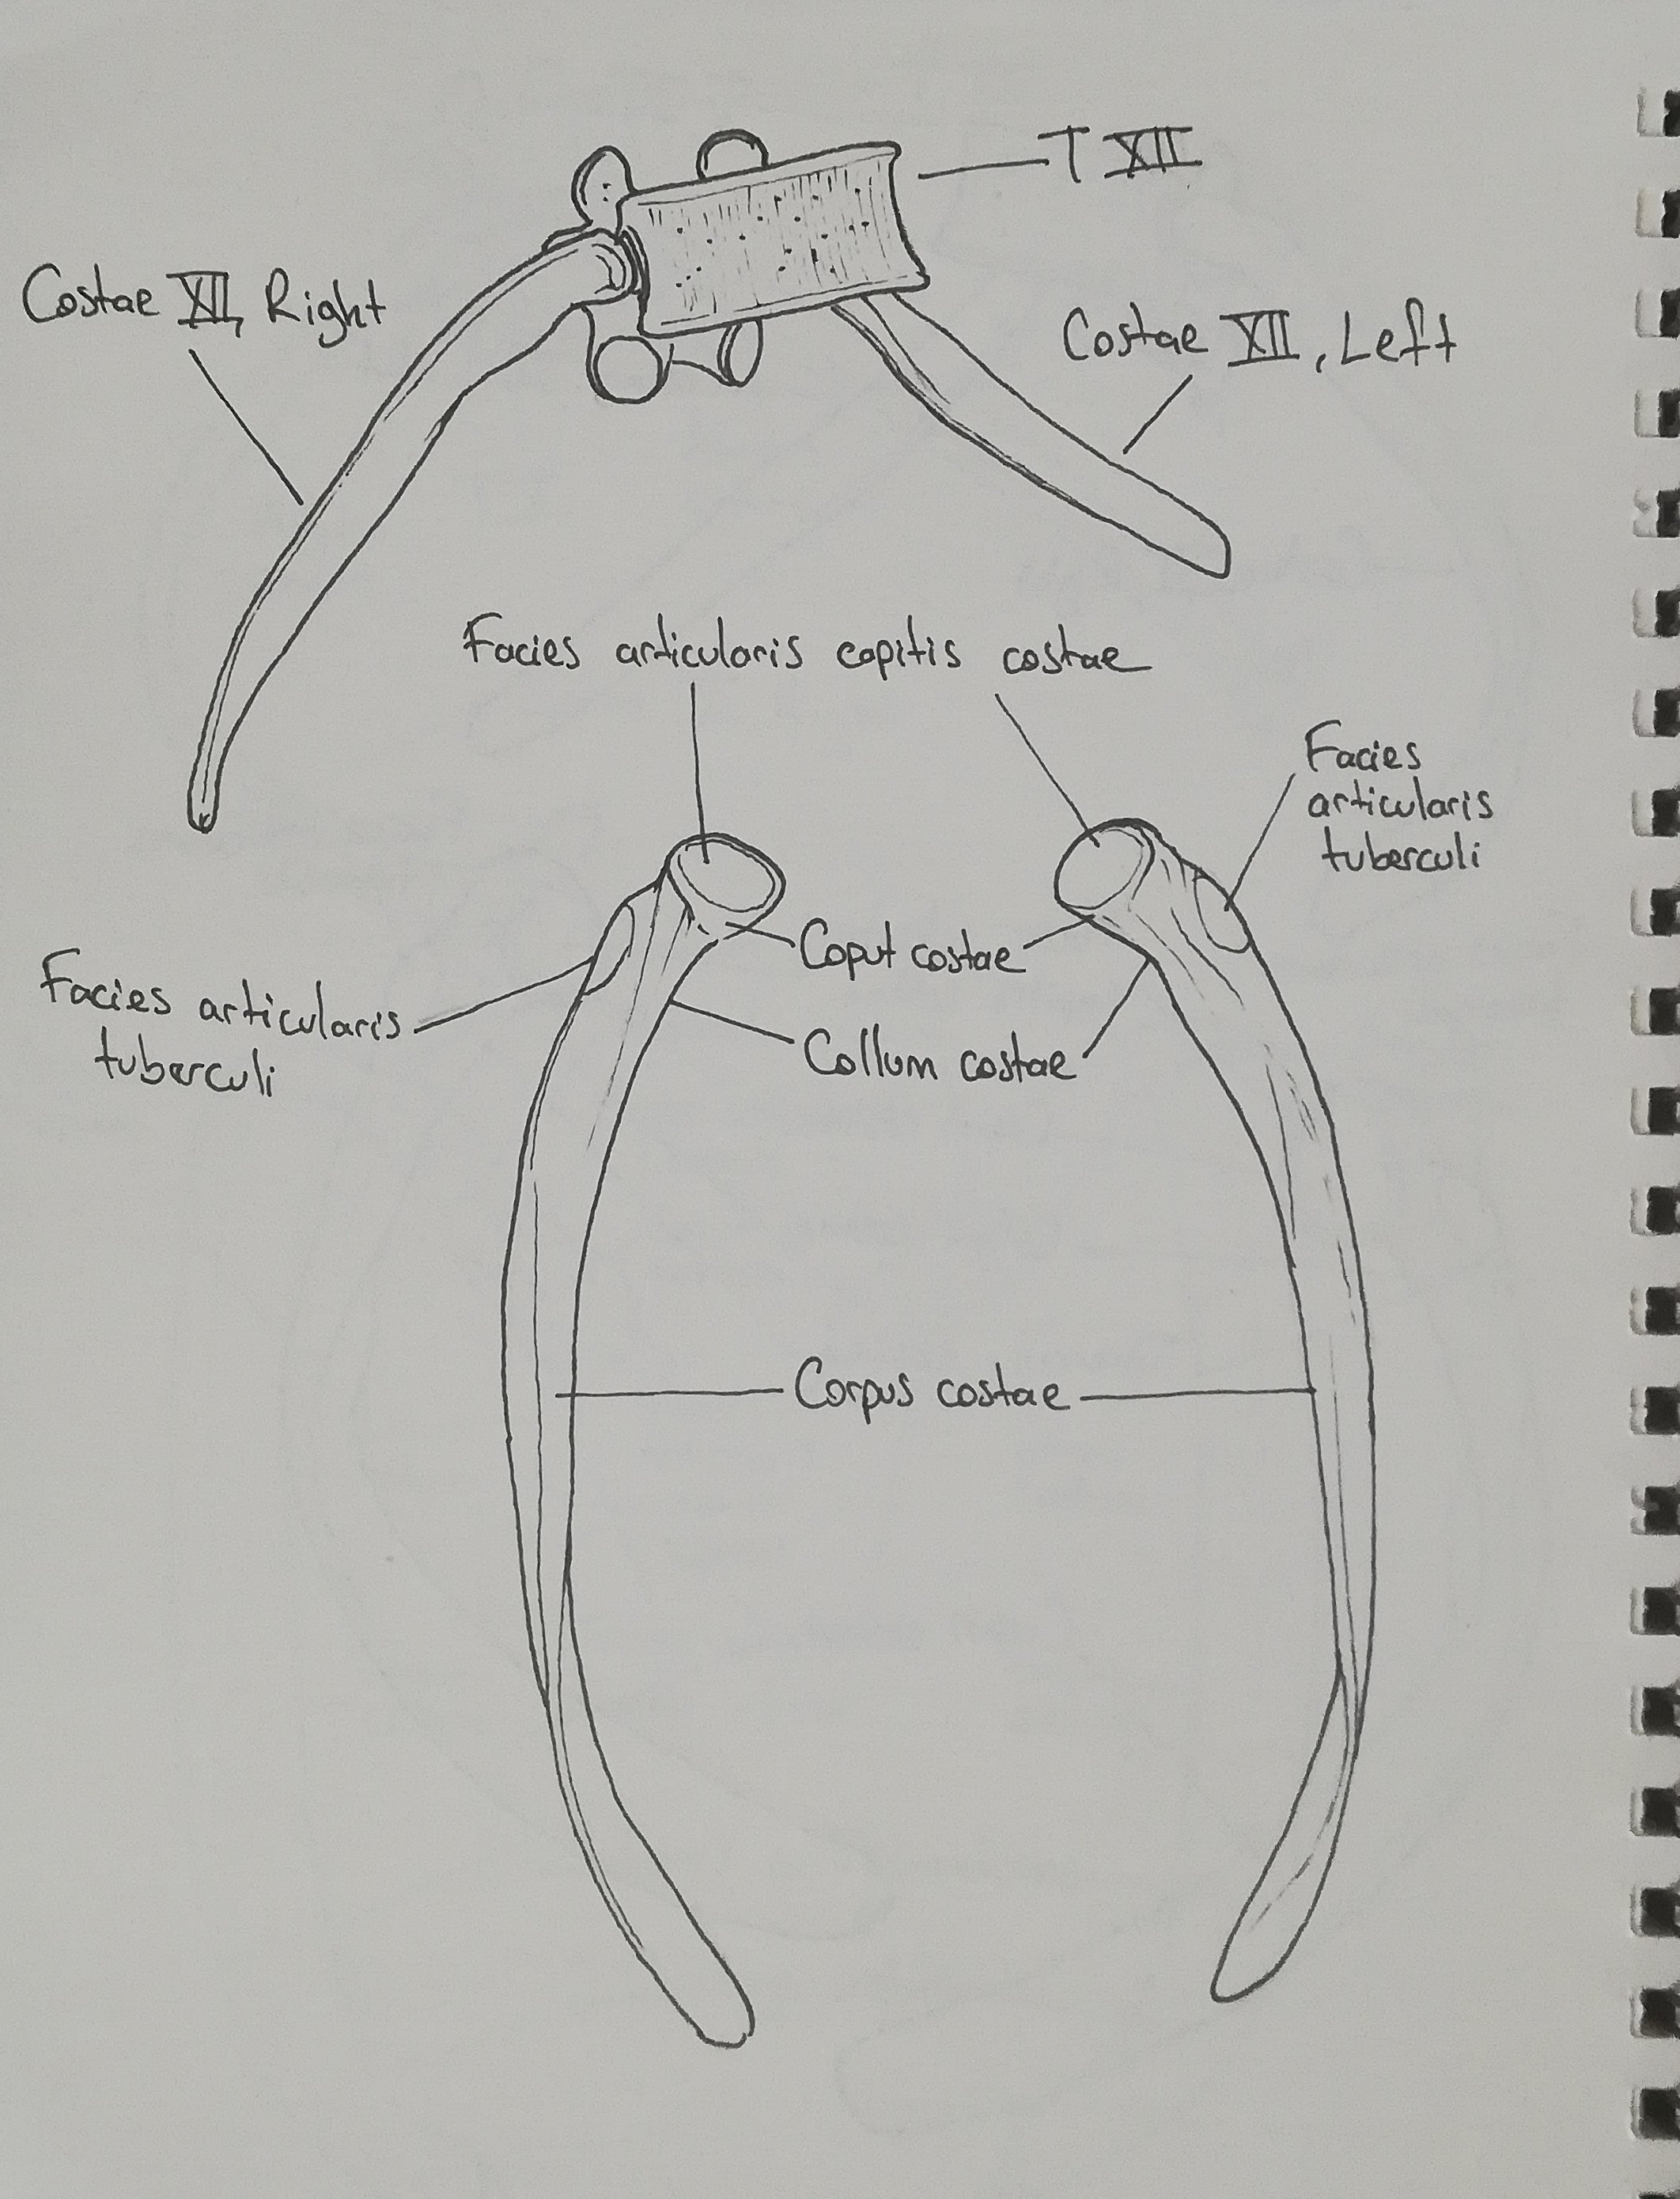 T XII
Costae XII, Right
Costae XII, Left
Facies articularis capitis costae
Facies
articularis
tuberculi
Caput costae
Facies articularis
tuberculi
Collum costae
Corpus costae